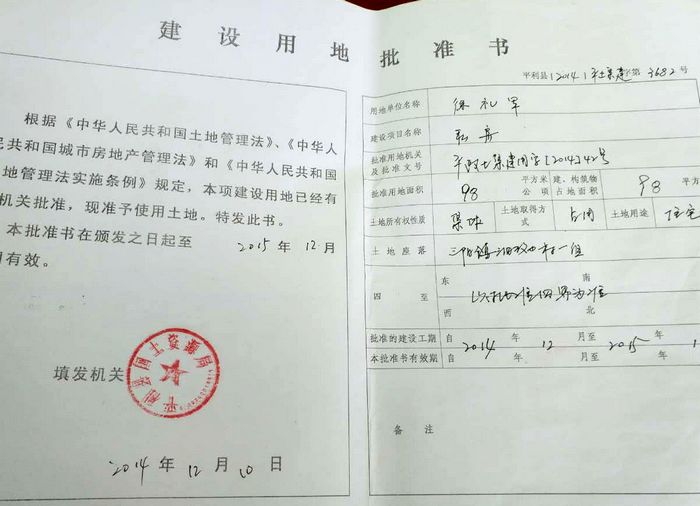 建设用地批准书
根据《中华人民共和国土地管理法》、《中华人
民共和国城市房地产管理法》和《中华人民共和国
地管理法实施条例》规定，本项建设用地已经有
机关批准，现准予使用土地。特发此书。
本批准书在颁发之日起至 2015 年 12 月
有效。
填发机关
平利县国土资源局
2014 年 12 月 10 日
平利县[2014]平土集建字第 3682 号
用地单位名称 徐礼军
建设项目名称
批准用地机关及批准文号 [2014]42号
批准用地面积 98 平方米 公顷 建、构筑物占地面积 98 平方
土地所有权性质 集体 土地取得方式 占用 土地用途 住宅
土地座落 三阳镇
四至 东 南 西 北 以实地四界为准
批准的建设工期 自 2014 年 12 月至 2015 年 1
本批准书有效期 自 年 月至 年
备注